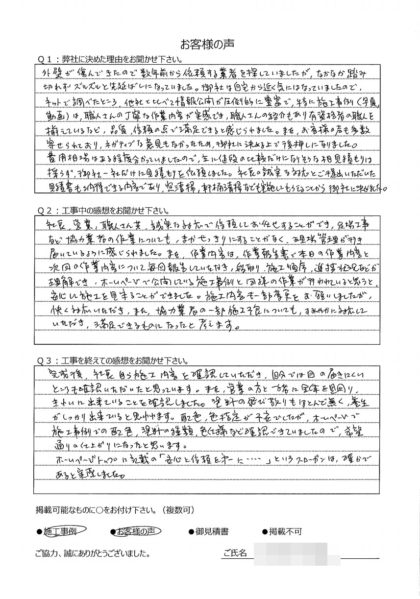 お客様の声
Q1:弊社に決めた理由をお聞かせ下さい。
外壁が傷んできたので数年前から依頼する業者を探していましたが、なかなか踏み
切れずズルズルと先延ばしになっていました。御社は自宅から近く気にはなっていましたので、
ネットで調べたところ、他社と比べて情報公開が圧倒的に豊富で、特に施工事例(写真、
動画)は、職人さんの丁寧な作業内容が実感でき、職人さんの紹介もあり有資格者の職人を
揃えているなど、品質、価格の点で満足できると感じられました。また、お客様の声も多数
寄せられており、ネガティブな意見もなかったため、御社に決める上で後押しになりました。
費用相場はある程度分かっていましたので、
採らず、御社一社だけに見積りを依頼しました。社長の誠実な対応とご提出いただいた
Q2:工事中の感想をお聞かせ下さい。
社長、営業、職人さん共、誠実な対応で信頼してお任せすることができ、足場工事
など協力業者の作業についても、まかせっきりにすることがなく、現場管理が行き
届いているように感じられました。また、作業内容は、作業報告書で本日の作業内容と
次回の作業内容について毎回報告していただき、段取り、施工順序、進捗状況などが
理解でき、ホームページで公開している施工事例と同様の作業が行われていると思うと、
安心して施工を見守ることができました。施工内容で一部変更をお願いしましたが、
快く対応いただき、また、協力業者の一部施工不良についても、すみやかに対応して
いただき、満足できるものになったと思います。
Q3:工事を終えての感想をお聞かせ下さい。
完成後、社長自ら施工内容を確認していただき、自分では目の届きにくい
ところを確認いただいたと思っています。また、営業の方と一緒に全体を見回り、
きれいに出来ていることを確認しました。塗料の飛び散りもほとんど無く、養生
がしっかり出来ていると思われます。配色、色指定が不安でしたが、ホームページで
施工事例での配色、塗料の種類、色仕様など確認できていましたので、希望
通りの仕上がりになったと思います。
ホームページトップに記載の「安心と信頼をカタチに‥‥」というスローガンは、確かで
あると実感しました。
掲載可能なものに○をお付け下さい。(複数可)
●施工事例 ●お客様の声 ●御見積書 ●掲載不可
ご協力、誠にありがとうございました。 ご氏名